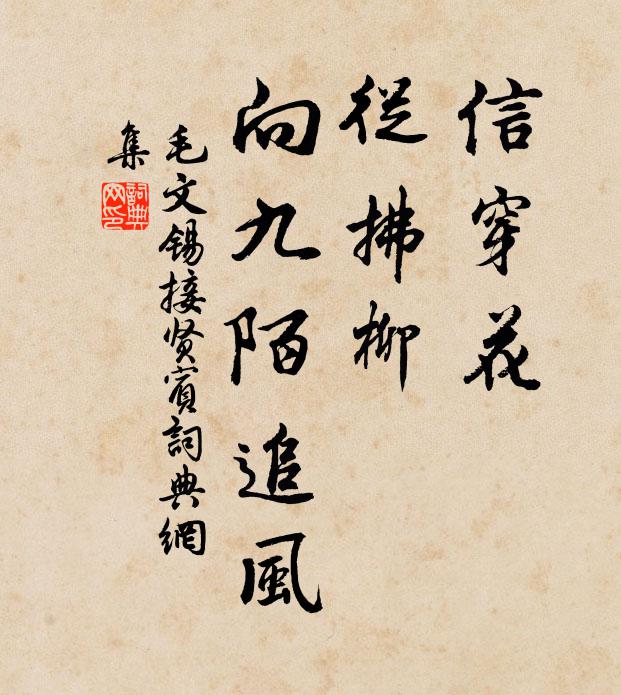 信穿花
從拂柳
向九陌追風
毛文锡接贤賓詞典網
集
詞典網印